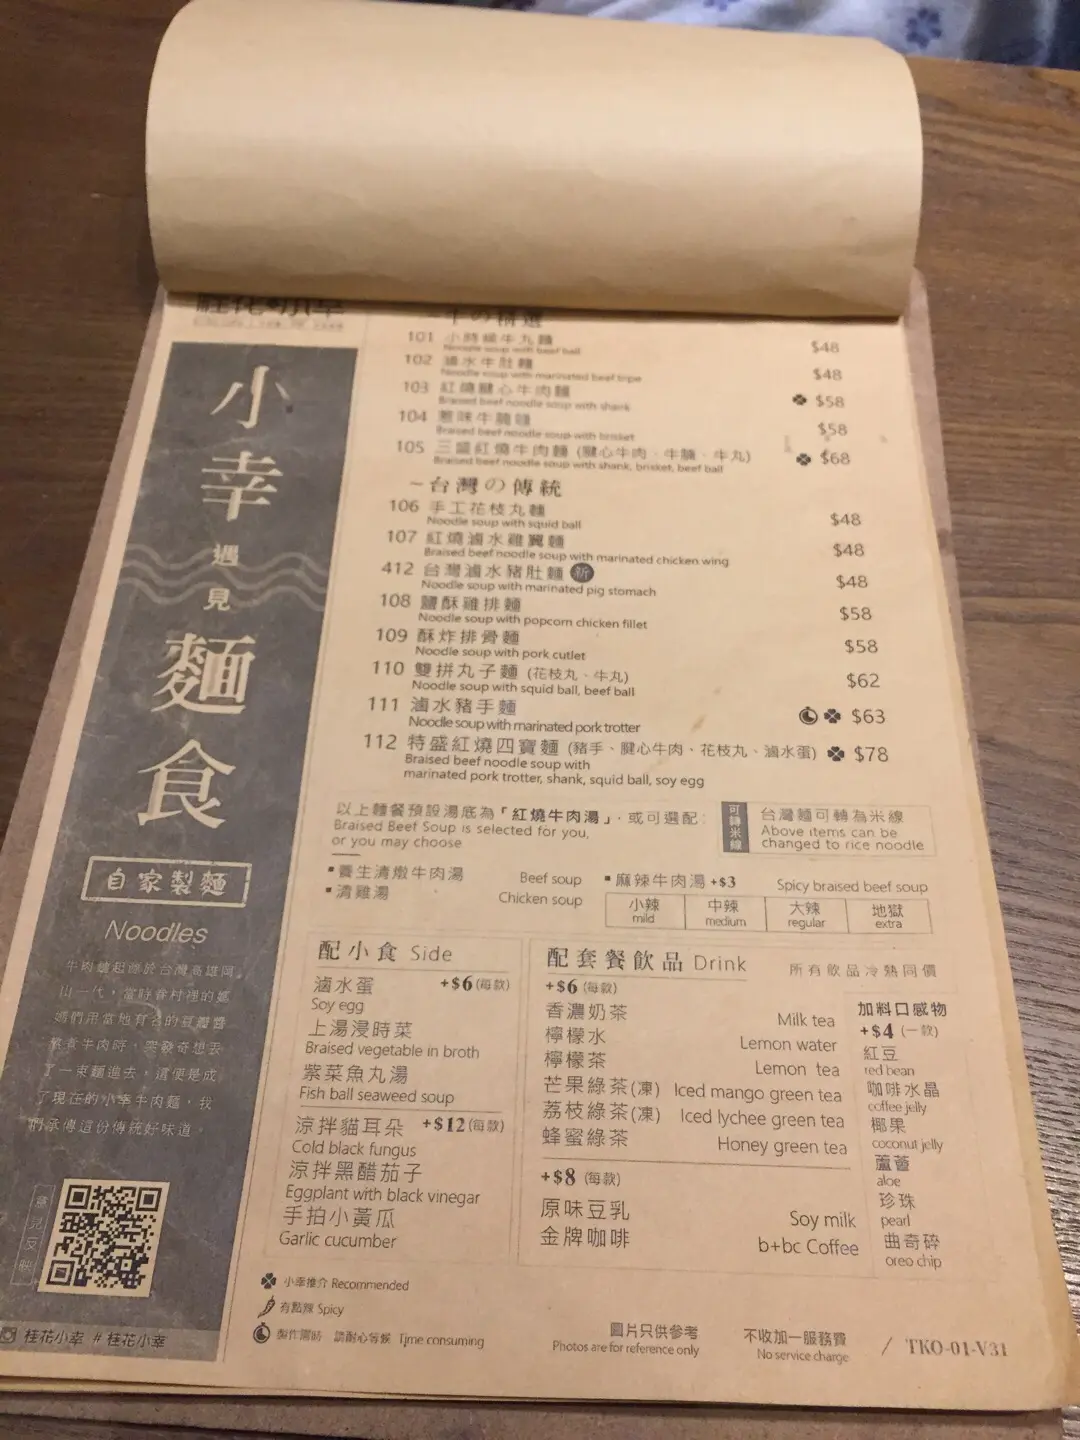 小幸
遇見
麵食
自家製麵
Noodles
桂花小幸 # 桂花小幸
101 小時候牛丸麵 $48
Noodle soup with beef ball
102 滷水牛肚麵 $48
Noodle soup with marinated beef tripe
103 紅燒腱心牛肉麵 $58
Braised beef noodle soup with shank
104 惹味牛腩麵 $58
Braised beef noodle soup with brisket
105 三盛紅燒牛肉麵 (腱心牛肉、牛腩、牛丸) $68
Braised beef noodle soup with shank, brisket, beef ball
~台灣の傳統
106 手工花枝丸麵 $48
Noodle soup with squid ball
107 紅燒滷水雞翼麵 $48
Braised beef noodle soup with marinated chicken wing
412 台灣滷水豬肚麵 新 $48
Noodle soup with marinated pig stomach
108 鹽酥雞排麵 $58
Noodle soup with popcorn chicken fillet
109 酥炸排骨麵 $58
Noodle soup with pork cutlet
110 雙拼丸子麵 (花枝丸、牛丸) $62
Noodle soup with squid ball, beef ball
111 滷水豬手麵 $63
Noodle soup with marinated pork trotter
112 特盛紅燒四寶麵 (豬手、腱心牛肉、花枝丸、滷水蛋) $78
Braised beef noodle soup with
marinated pork trotter, shank, squid ball, soy egg
以上麵餐預設湯底為「紅燒牛肉湯」, 或可選配:
Braised Beef Soup is selected for you,
or you may choose
可轉米線
台灣麵可轉為米線
Above items can be
changed to rice noodle
▪養生清燉牛肉湯 Beef soup
▪清雞湯 Chicken soup
▪麻辣牛肉湯 +$3 Spicy braised beef soup
小辣 中辣 大辣 地獄
mild medium regular extra
配小食 Side
滷水蛋 +$6 (每款)
Soy egg
上湯浸時菜
Braised vegetable in broth
紫菜魚丸湯
Fish ball seaweed soup
涼拌貓耳朵 +$12 (每款)
Cold black fungus
涼拌黑醋茄子
Eggplant with black vinegar
手拍小黃瓜
Garlic cucumber
配套餐飲品 Drink 所有飲品冷熱同價
+$6 (每款)
香濃奶茶 Milk tea
檸檬水 Lemon water
檸檬茶 Lemon tea
芒果綠茶(凍) Iced mango green tea
荔枝綠茶(凍) Iced lychee green tea
蜂蜜綠茶 Honey green tea
+$8 (每款)
原味豆乳 Soy milk
金牌咖啡 b+bc Coffee
加料口感物
+$4 (一款)
紅豆
red bean
咖啡水晶
coffee jelly
椰果
coconut jelly
蘆薈
aloe
珍珠
pearl
曲奇碎
oreo chip
小幸推介 Recommended
有點辣 Spicy
製作需時 請耐心等候 Time consuming
圖片只供參考
Photos are for reference only
不收加一服務費
No service charge
/ TKO-01-V31